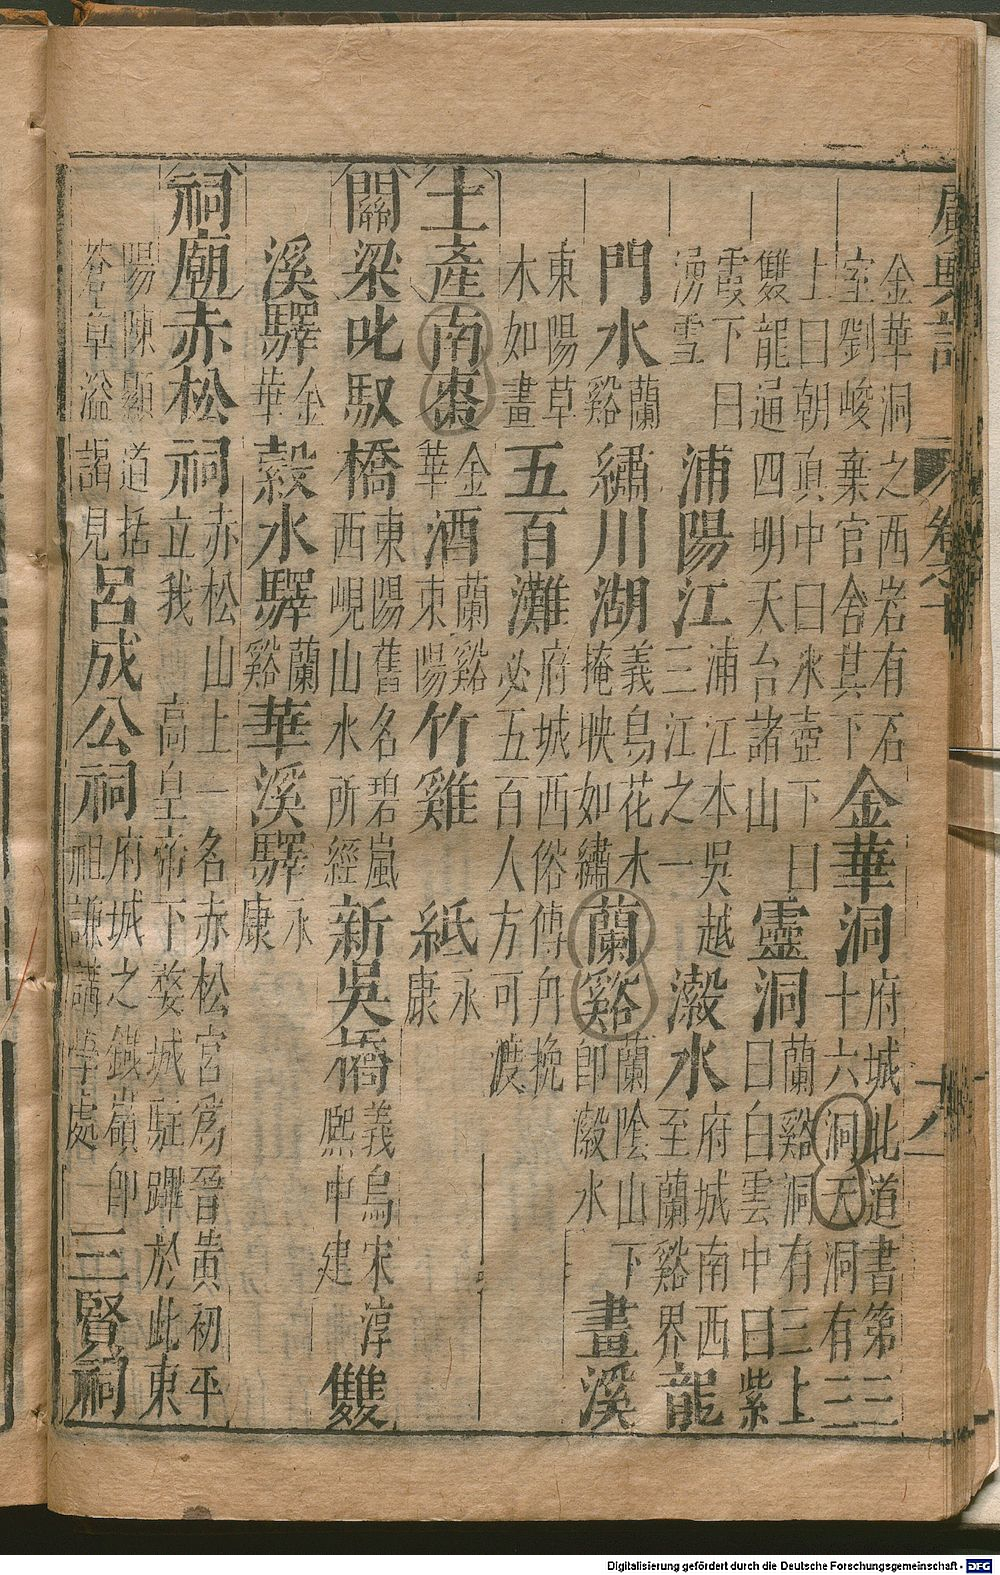 廣輿記 卷
金華洞之西岩有石
室劉峻棄官舍其下
金華洞
府城北道書第三
十六洞天洞有三
上曰朝真中曰氷壺下曰
雙龍通四明天台諸山
靈洞
蘭谿洞有三上
曰白雲中曰紫
霞下曰
湧雪
浦陽江
浦江本吳越
三江之一
瀫水
府城南西
至蘭谿界
龍
門水
蘭
谿
繡川湖
義烏花木
掩映如繡
蘭谿
蘭陰山下
即瀫水
畫溪
東陽草
木如畫
五百灘
府城西俗傳舟挽
必五百人方可渡
土產
南棗
金
華
酒
蘭谿
東陽
竹雞
紙
永
康
關梁
叱馭橋
東陽舊名碧嵐
西峴山水所經
新吳橋
義烏宋淳
熙中建
雙
溪驛
金
華
縠水驛
蘭
谿
華溪驛
永
康
祠廟
赤松祠
赤松山上一名赤松宮爲晉黃初平
立我 高皇帝下婺城駐蹕於此東
陽陳顯道括
蒼章溢謁見
呂成公祠
府城之鐵嶺即
祖謙講學處
三賢祠
Digitalisierung gefördert durch die Deutsche Forschungsgemeinschaft - DFG